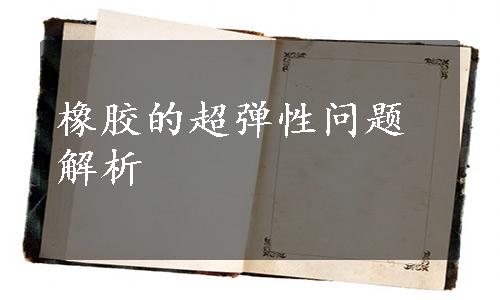 橡胶的超弹性问题
解析